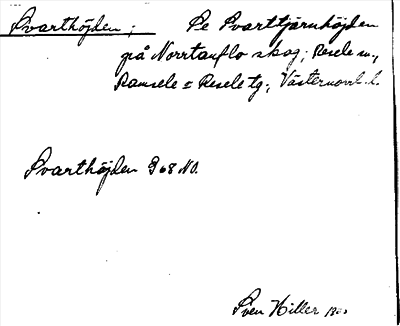 Svarthöjden; Se Svarttjärnhöjden
på Norrtanflo skog; Resele sn.,
Ramsele o Resele tg., Västernorrl. l.
Svarthöjden 968 NO.
Sven Hiller